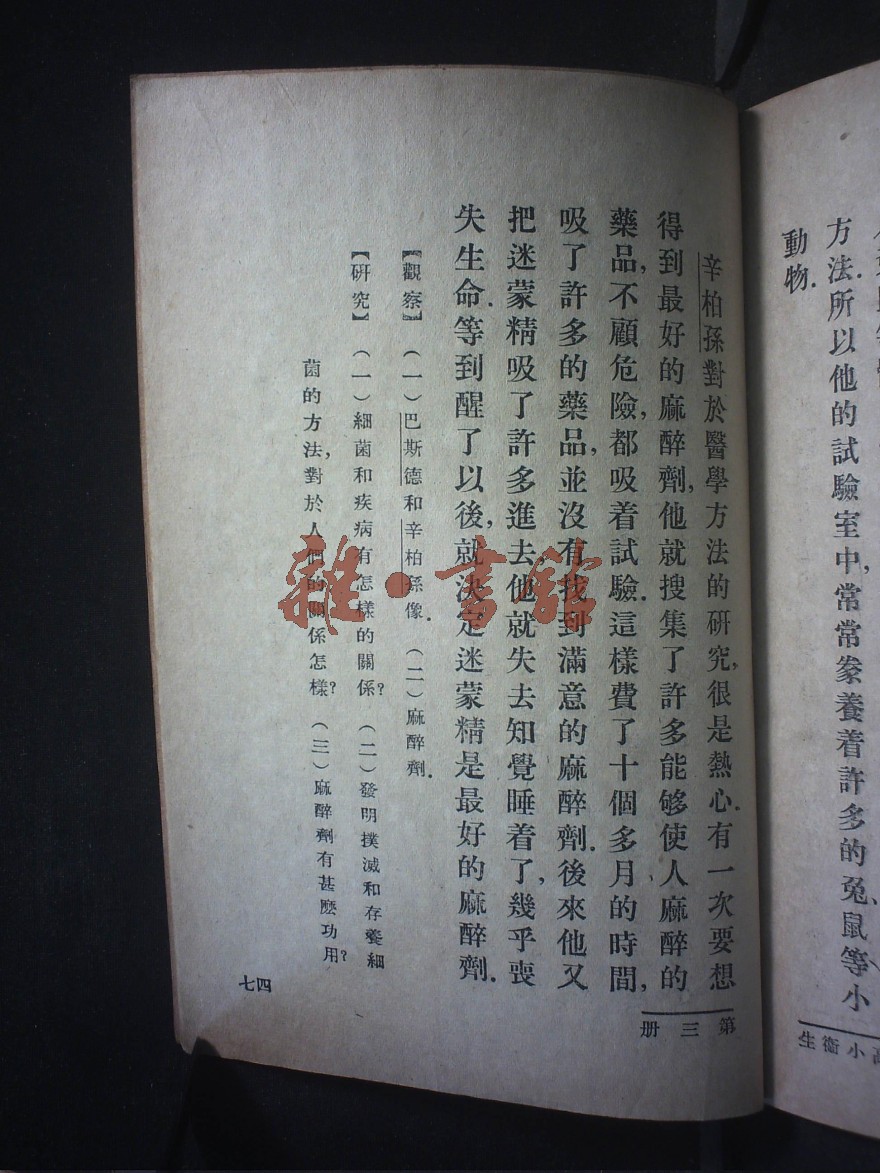 方法.所以他的試驗室中,常常豢養着許多的兔、鼠等小
動物.
高小衛生
辛柏孫對於醫學方法的研究,很是熱心.有一次要想
得到最好的麻醉劑,他就搜集了許多能够使人麻醉的
藥品,不顧危險,都吸着試驗.這樣費了十個多月的時間,
吸了許多的藥品,並沒有找到滿意的麻醉劑.後來他又
把迷蒙精吸了許多進去他就失去知覺睡着了,幾乎喪
失生命.等到醒了以後,就決定迷蒙精是最好的麻醉劑.
【觀察】(一)巴斯德和辛柏孫像.(二)麻醉劑.
【研究】(一)細菌和疾病有怎樣的關係?(二)發明撲滅和存養細
菌的方法,對於人們的關係怎樣?(三)麻醉劑有甚麽功用?
第三册
七四
雜·書館